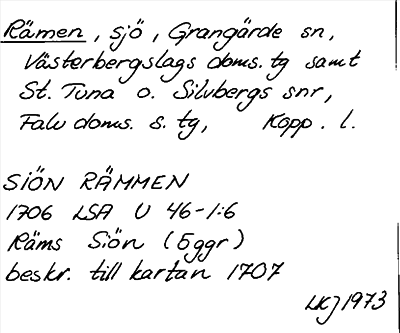 Rämen, sjö, Grangärde sn,
Västerbergslags doms. tg samt
St. Tuna o. Silvbergs snr,
Falu doms. s. tg, Kopp. l.
SIÖN RÄMMEN
1706 LSA U 46-1:6
Räms Siön (5ggr)
beskr. till kartan 1707
LKJ 1973